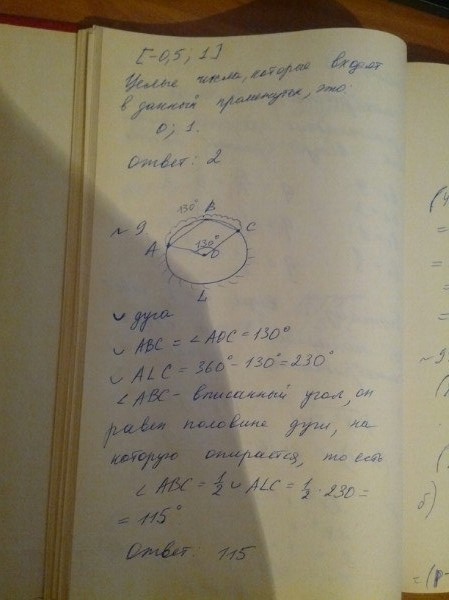 [-0,5; 1]
Целые числа, которые входят
в данный промежуток, это:
0; 1.
Ответ: 2
130°
B
~ 9
C
A
130°
O
L
◡ дуга
◡ ABC = ∠AOC = 130°
◡ ALC = 360° - 130° = 230°
∠ABC - вписанный угол, он
равен половине дуги, на
которую опирается, то есть
∠ABC = 1/2 ◡ ALC = 1/2 · 230 =
= 115°
Ответ: 115
(4
=
=
=
~ 9
(
(
б)
= (p-